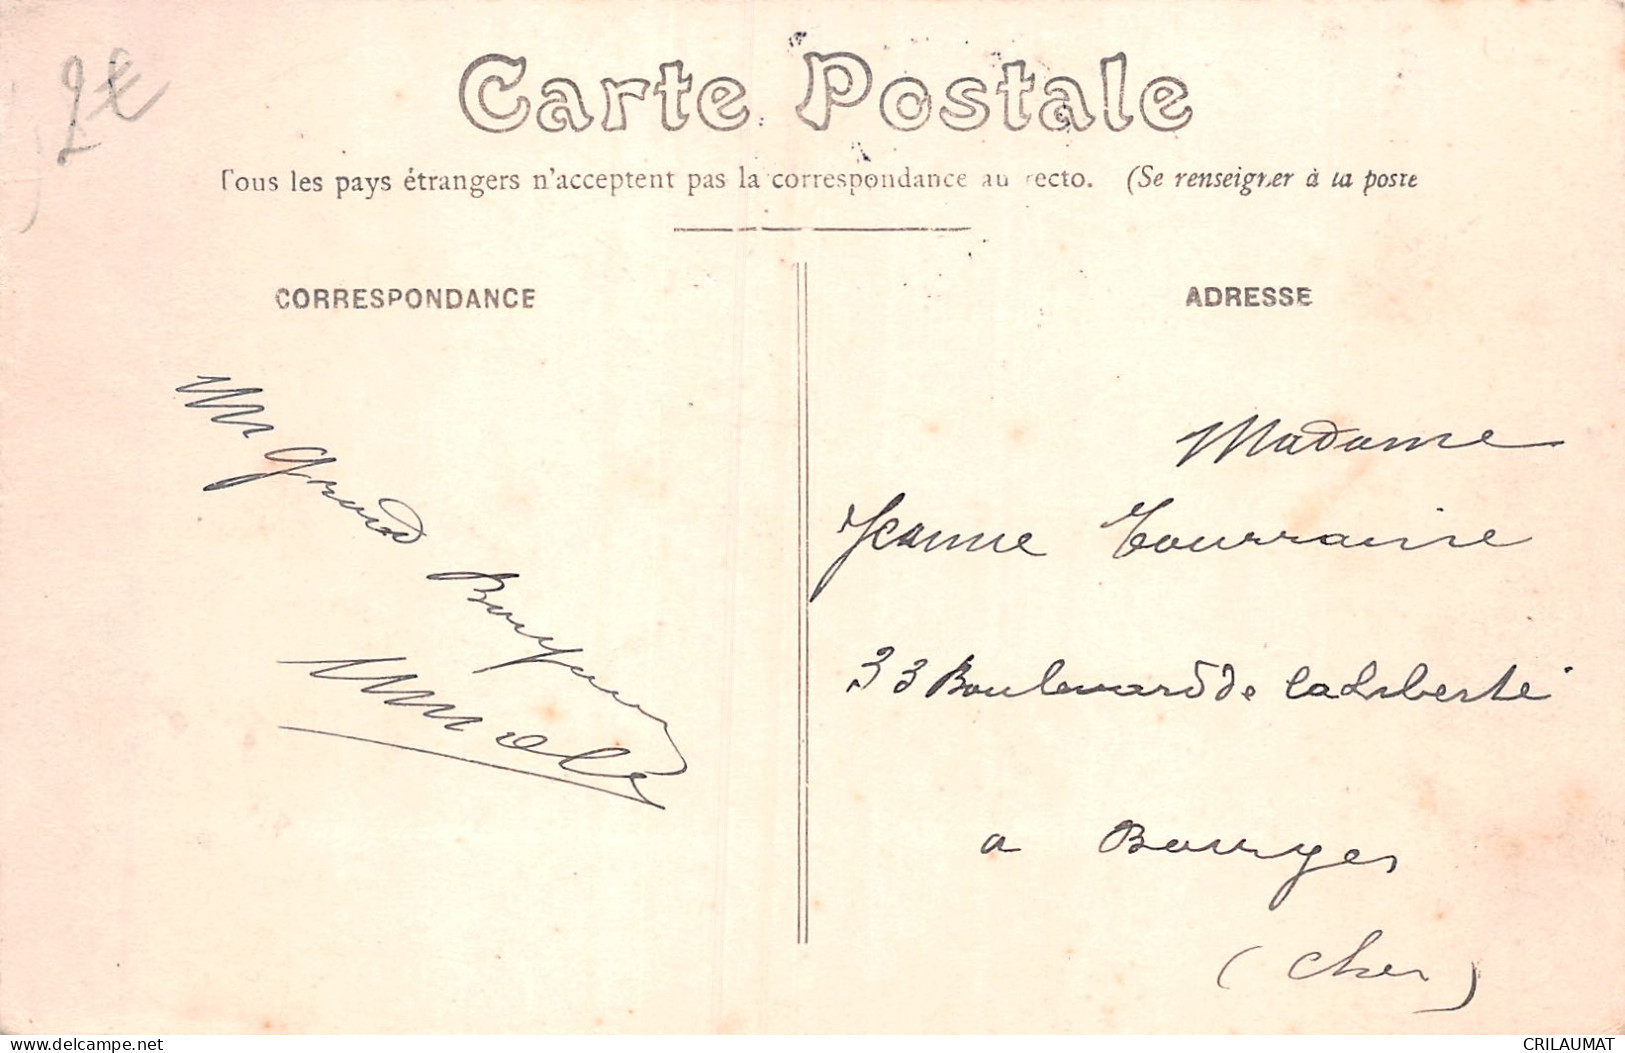 2€
Carte Postale
Tous les pays étrangers n'acceptent pas la correspondance au recto. (Se renseigner à la poste
CORRESPONDANCE
ADRESSE
Un Grand Bonjour
Madame
Jeanne Tourraine
33 Boulevard de la Liberté
a Bourges
(Cher)
delcampe.net
CRILAUMAT